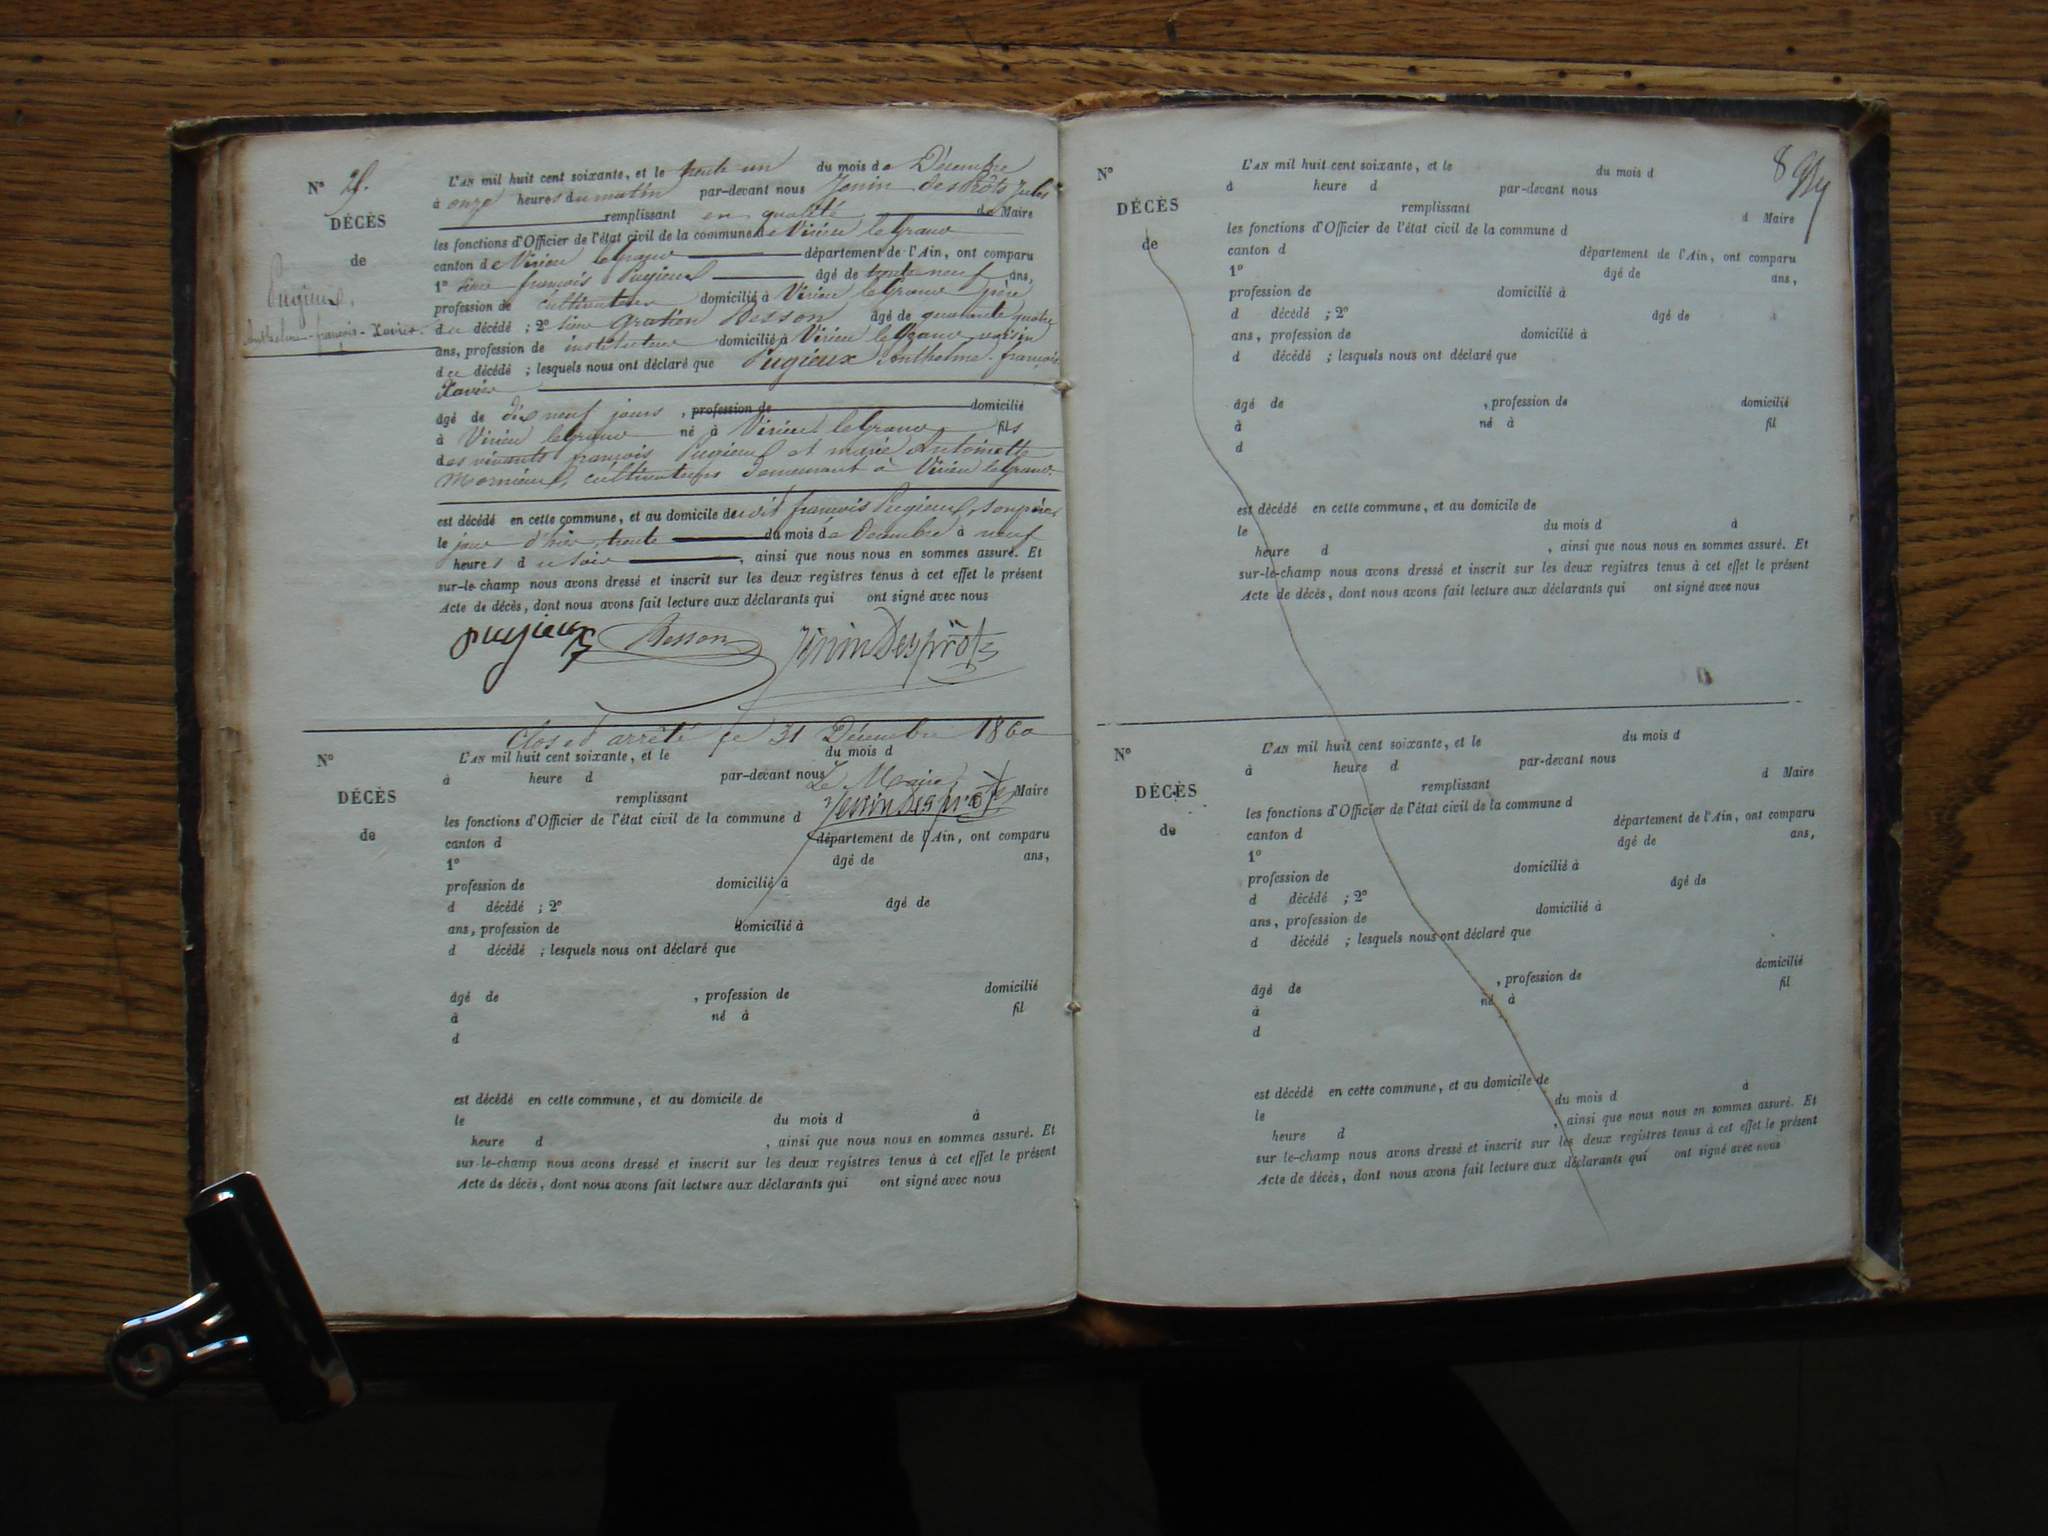 N° 
DÉCÈS
de
Pugieux,
Anthelme-françois-Xavier.
L'AN mil huit cent soixante, et le trente un du mois de Décembre
à onze heures du matin par-devant nous Jenin desprôts Jules
remplissant en qualité de Maire
les fonctions d'Officier de l'état civil de la commune de Virieu le Grand
canton de Virieu le grand département de l'Ain, ont comparu
1° sieur françois Pugieux âgé de trente neuf ans,
profession de cultivateur domicilié à Virieu le Grand père
du décédé ; 2° sieur Gratien Besson âgé de quarante quatre
ans, profession de instituteur domicilié à Virieu le Grand voisin
du décédé ; lesquels nous ont déclaré que Pugieux Anthelme-françois
Xavier
âgé de dix neuf jours , profession de domicilié
à Virieu le grand né à Virieu le Grand fils
des vivants françois Pugieux et marie Antoinette
cultivateurs demeurant à Virieu le Grand.
est décédé en cette commune, et au domicile dudit françois Pugieux, son père
le jour d'hier, trente du mois de Décembre à neuf
heures du soir , ainsi que nous nous en sommes assuré. Et
sur-le-champ nous avons dressé et inscrit sur les deux registres tenus à cet effet le présent
Acte de décès, dont nous avons fait lecture aux déclarants qui ont signé avec nous
Pugieux Besson Jenin Desprôts
Clos et arrêté le 31 Décembre 1860
N°
DÉCÈS
de
L'AN mil huit cent soixante, et le du mois d
à heure d par-devant nous
Le Maire,
remplissant Maire
Jenin Desprôts
les fonctions d'Officier de l'état civil de la commune d
canton d département de l'Ain, ont comparu
1° âgé de ans,
profession de domicilié à
d décédé ; 2° âgé de
ans, profession de domicilié à
d décédé ; lesquels nous ont déclaré que
âgé de , profession de domicilié
à né à fil
d
est décédé en cette commune, et au domicile de
le du mois d à
heure d , ainsi que nous nous en sommes assuré. Et
sur-le-champ nous avons dressé et inscrit sur les deux registres tenus à cet effet le présent
Acte de décès, dont nous avons fait lecture aux déclarants qui ont signé avec nous
N°
DÉCÈS
de
L'AN mil huit cent soixante, et le du mois d
à heure d par-devant nous
remplissant d Maire
les fonctions d'Officier de l'état civil de la commune d
canton d département de l'Ain, ont comparu
1° âgé de ans,
profession de domicilié à
d décédé ; 2° âgé de
ans, profession de domicilié à
d décédé ; lesquels nous ont déclaré que
âgé de , profession de domicilié
à né à fil
d
est décédé en cette commune, et au domicile de
le du mois d à
heure d , ainsi que nous nous en sommes assuré. Et
sur-le-champ nous avons dressé et inscrit sur les deux registres tenus à cet effet le présent
Acte de décès, dont nous avons fait lecture aux déclarants qui ont signé avec nous
N°
DÉCÈS
de
L'AN mil huit cent soixante, et le du mois d
à heure d par-devant nous
remplissant d Maire
les fonctions d'Officier de l'état civil de la commune d
canton d département de l'Ain, ont comparu
1° âgé de ans,
profession de domicilié à
d décédé ; 2° âgé de
ans, profession de domicilié à
d décédé ; lesquels nous ont déclaré que
âgé de , profession de domicilié
à né à fil
d
est décédé en cette commune, et au domicile de
le du mois d à
heure d , ainsi que nous nous en sommes assuré. Et
sur-le-champ nous avons dressé et inscrit sur les deux registres tenus à cet effet le présent
Acte de décès, dont nous avons fait lecture aux déclarants qui ont signé avec nous